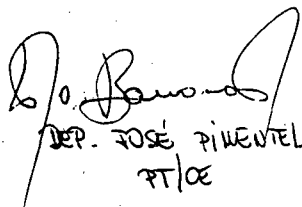 DEP. JOSÉ PIMENTEL
PT/CE